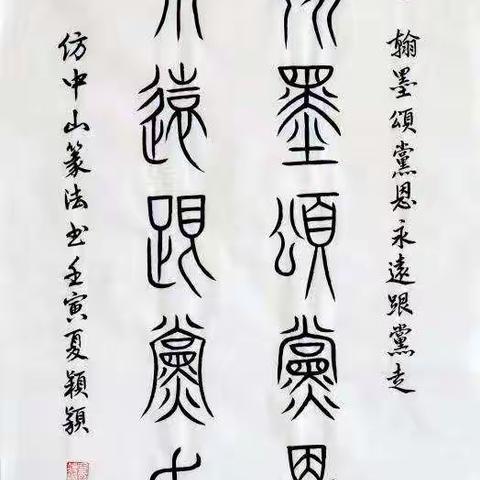 翰墨頌黨恩永遠跟黨走
翰墨頌黨恩
永遠跟黨走
仿中山篆法书壬寅夏穎穎